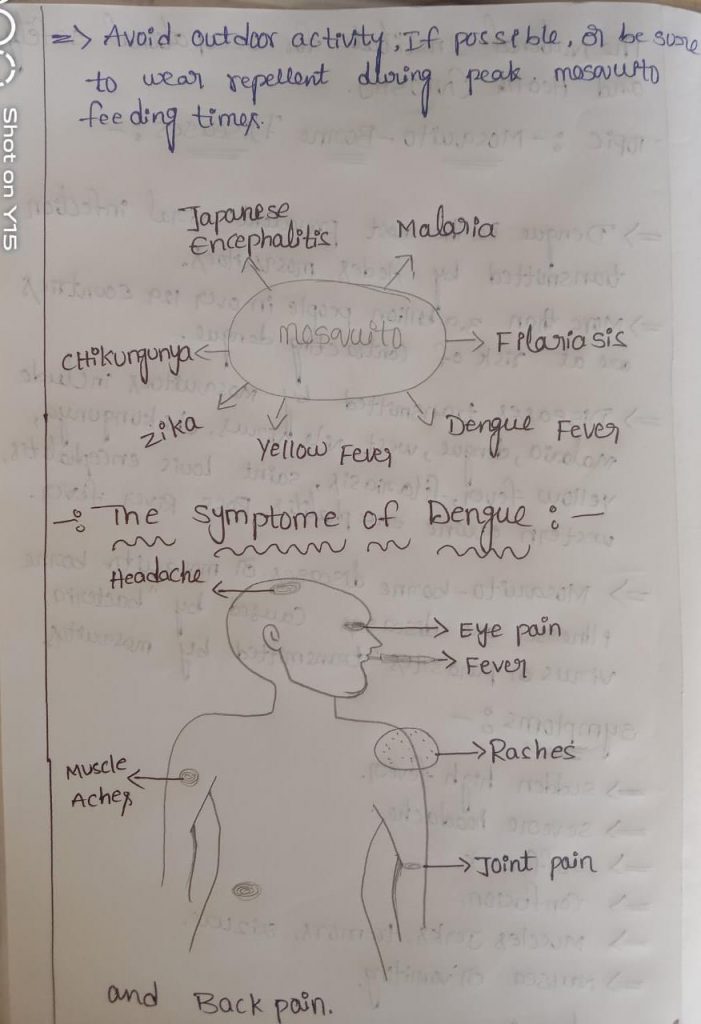 => Avoid outdoor activity, If possible, or be sure
to wear repellent during peak mosquito
feeding times.
Japanese
Encephalitis.
Malaria
mosquito
Chikungunya
Filariasis
Zika
Yellow Fever
Dengue Fever
-: The Symptome of Dengue :-
Headache
Eye pain
Fever
Raches
Muscle
Aches
Joint pain
and Back pain.
Shot on Y15